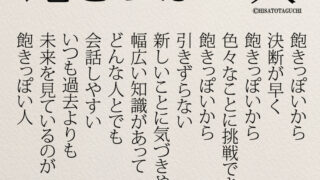 ©HISATOTAGUCHI
飽きっぽいから
決断が早く
飽きっぽいから
色々なことに挑戦でき
飽きっぽいから
引きずらない
新しいことに気づきや
幅広い知識があって
どんな人とでも
会話しやすい
いつも過去よりも
未来を見ているのが
飽きっぽい人